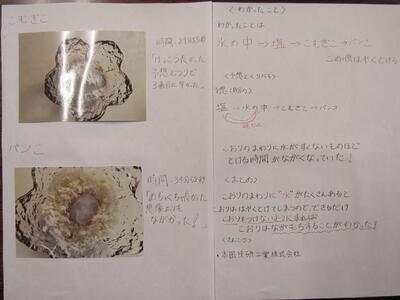 こむぎこ
時間:29分55秒
「けっこう長かった
予想どうりで
3番目に早かった。」
パンこ
時間:34分52秒
「めちゃくちゃ長かった
想像よりも
ながかった!」
〈わかったこと〉
わかったことは
水の中→塩→こむぎこ→パンこ
この順はやくとける
〈予想とくらべる〉
予想(順の)
塩→水の中→こむぎこ→パンコ
こおりのまわりに水がすくないものほど
とける時間がながくなっていた!
〈まとめ〉
こおりのまわりに"水"がたくさんあると
こおりははやくとけてしまうので、できるだけ
こおりをつけないようにすれば
こおりはながもちすることがわかった!
〈さんこう〉
・本田技研工業株式会社